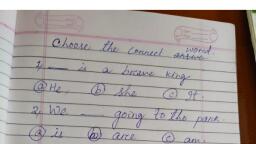 Choose the correct word.
1) ___ is a brave king
(a) He. (b) she (c) It.
2) We ___ going to the park.
(a) is (b) are (c) am.